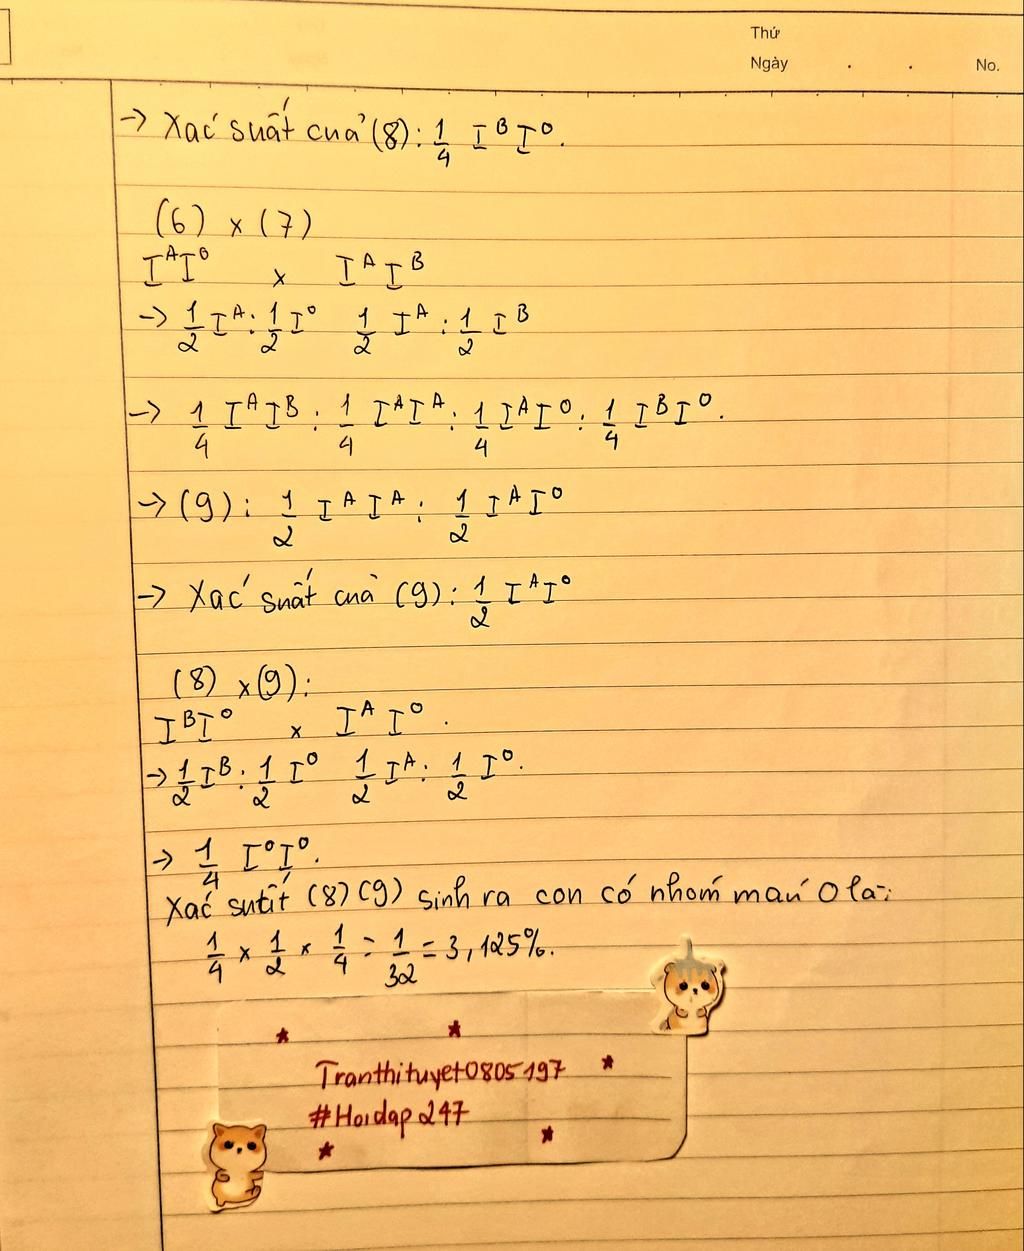 Thứ
Ngày . . No.
→ Xác suất của (8): 1/4 IᴮIᴼ.
(6) x (7)
IᴬIᴼ x IᴬIᴮ
→ 1/2 Iᴬ : 1/2 Iᴼ 1/2 Iᴬ : 1/2 Iᴮ
→ 1/4 IᴬIᴮ : 1/4 IᴬIᴬ : 1/4 IᴬIᴼ : 1/4 IᴮIᴼ.
→ (9): 1/2 IᴬIᴬ : 1/2 IᴬIᴼ
→ Xác suất của (9): 1/2 IᴬIᴼ
(8) x (9):
IᴮIᴼ x IᴬIᴼ.
→ 1/2 Iᴮ : 1/2 Iᴼ 1/2 Iᴬ : 1/2 Iᴼ.
→ 1/4 IᴼIᴼ.
Xác sutít (8) (9) sinh ra con có nhóm máu O là:
1/4 x 1/2 x 1/4 = 1/32 = 3,125%.
Tranthituyet0805197
#Hoidap247